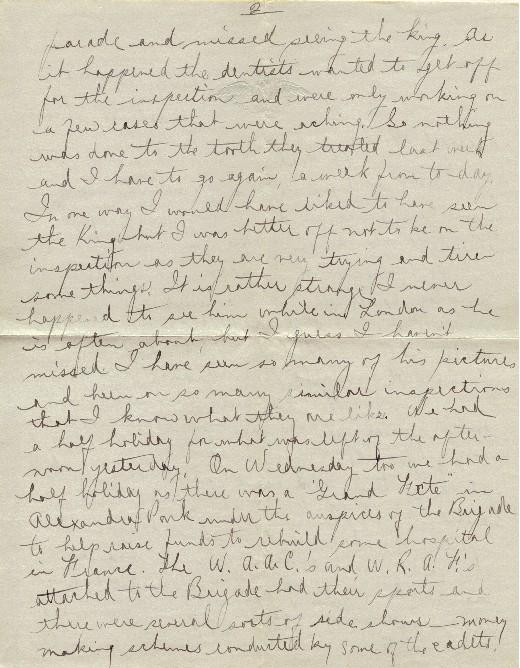 2
parade and missed seeing the king. As
it happened the dentists wanted to get off
for the inspection and were only working on
a few cases that were aching. So nothing
was done to the tooth they treated last week
and I have to go again a week from to-day.
In one way I would have liked to have seen
the King but I was better off not to be on the
inspection as they are very trying and tire
some things. It is rather strange I never
happened to see him while in London as he
is often about, but I guess I haven't
missed I have seen so many of his pictures
and been on so many similar inspections
that I know what they are like. We had
a half holiday for what was left of the after-
noon yesterday. On Wednesday too we had a
half holiday as there was a "Grand Fete" in
Alexandra Park under the auspices of the Brigade
to help raise funds to rebuild some hospital
in France. The W. A. A. C.'s and W. R. A. F.'s
attached to the Brigade had their sports and
there were several sorts of side shows - money
making schemes conducted by some of the cadets.